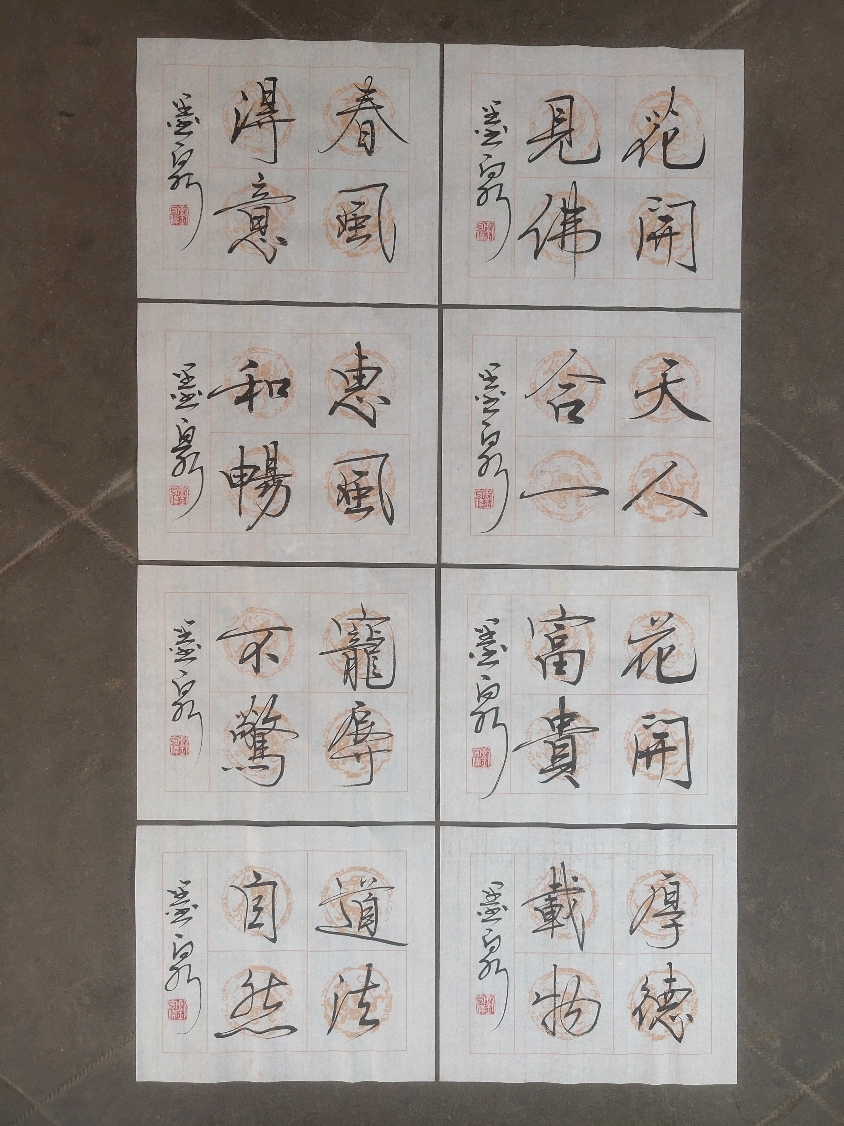 花開
見佛
墨泉
春風
得意
墨泉
天人
合一
墨泉
惠風
和暢
墨泉
花開
富貴
墨泉
寵辱
不驚
墨泉
厚德
載物
墨泉
道法
自然
墨泉